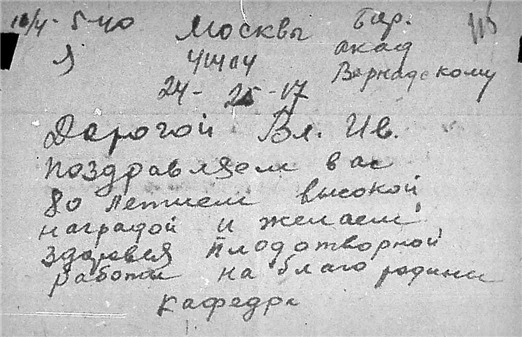 10/4 - 5-40 Москвы Бар. 115
акад
Вернадскому
24- 25 -17
Дорогой Вл. Ив.
поздравляем вас
80 летием высокой
наградой и желаем
здоровья плодотворной
работы на благо родини
кафедра